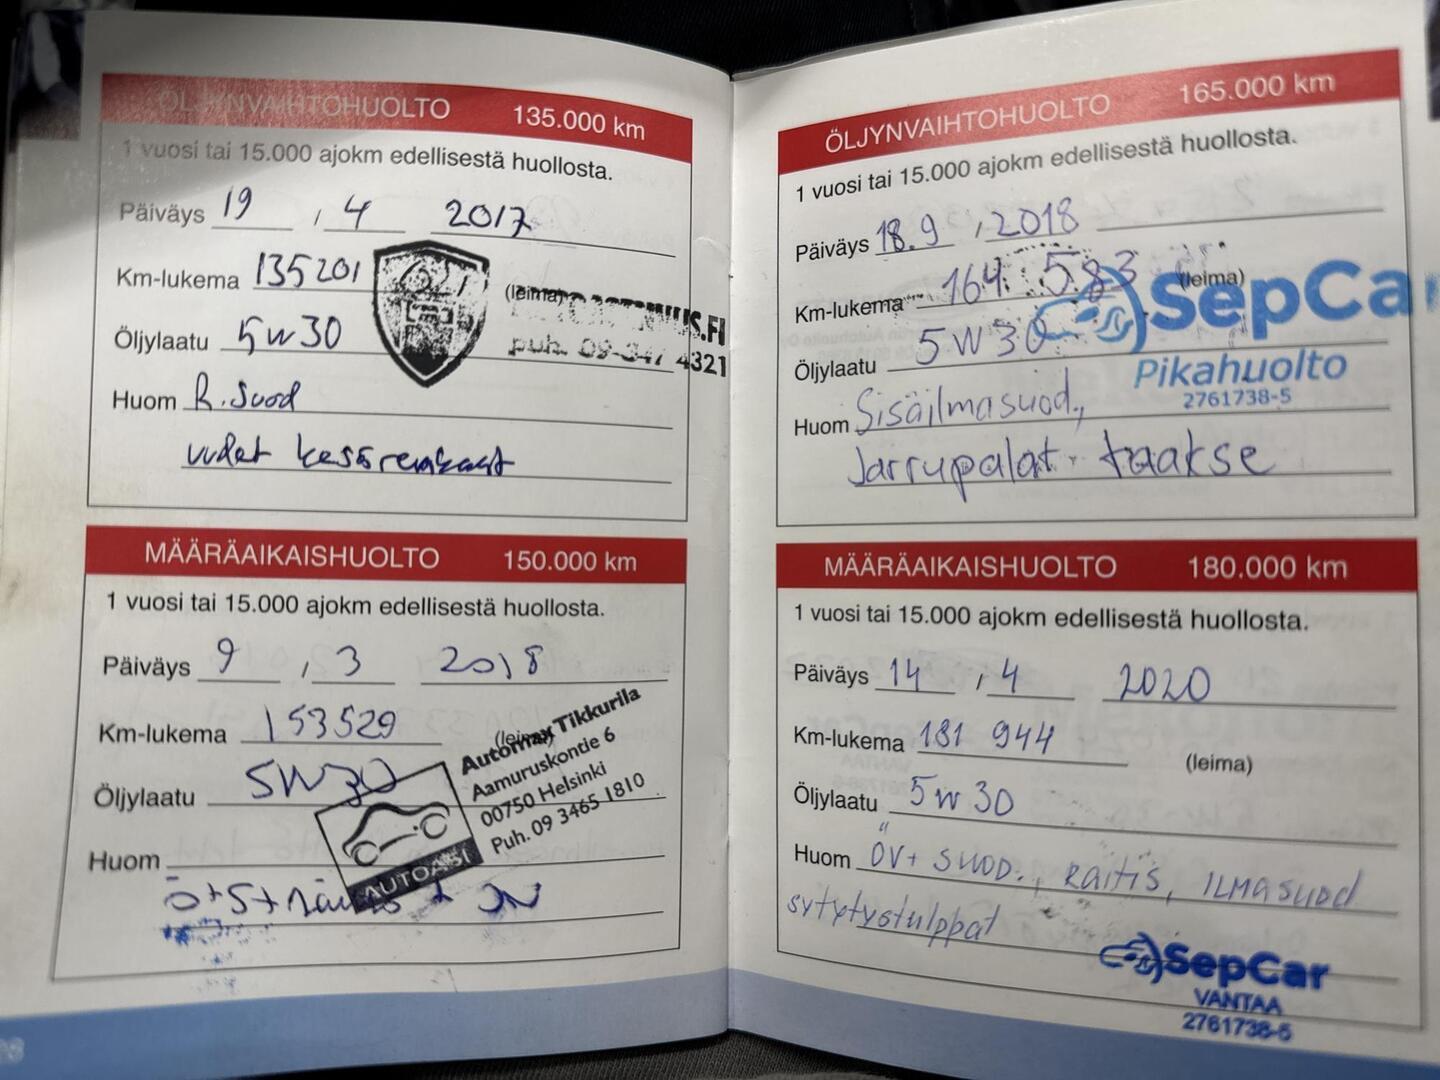 ÖLJYNVAIHTOHUOLTO 135.000 km
1 vuosi tai 15.000 ajokm edellisestä huollosta.
Päiväys 19 , 4 2017
Km-lukema 135201 (leima)
.FI
Öljylaatu 5W30 puh. 09-347 4321
Huom R. suod
uudet kesärenkaat
MÄÄRÄAIKAISHUOLTO 150.000 km
1 vuosi tai 15.000 ajokm edellisestä huollosta.
Päiväys 9 , 3 2018
Km-lukema 153529 (leima)
Öljylaatu 5W30
Huom
Ö+S+
Automax Tikkurila
Aamuruskontie 6
00750 Helsinki
Puh. 09 3465 1810
AUTOASI
ÖLJYNVAIHTOHUOLTO 165.000 km
1 vuosi tai 15.000 ajokm edellisestä huollosta.
Päiväys 18.9 , 2018
Km-lukema 164 583 (leima)
Öljylaatu 5W30
SepCar
Pikahuolto
2761738-5
Huom Sisäilmasuod.,
Jarrupalat taakse
MÄÄRÄAIKAISHUOLTO 180.000 km
1 vuosi tai 15.000 ajokm edellisestä huollosta.
Päiväys 14 , 4 2020
Km-lukema 181 944 (leima)
Öljylaatu 5W30
Huom ÖV+ SUOD., RAITIS, ILMASUOD
sytytystulppat
SepCar
VANTAA
2761738-5